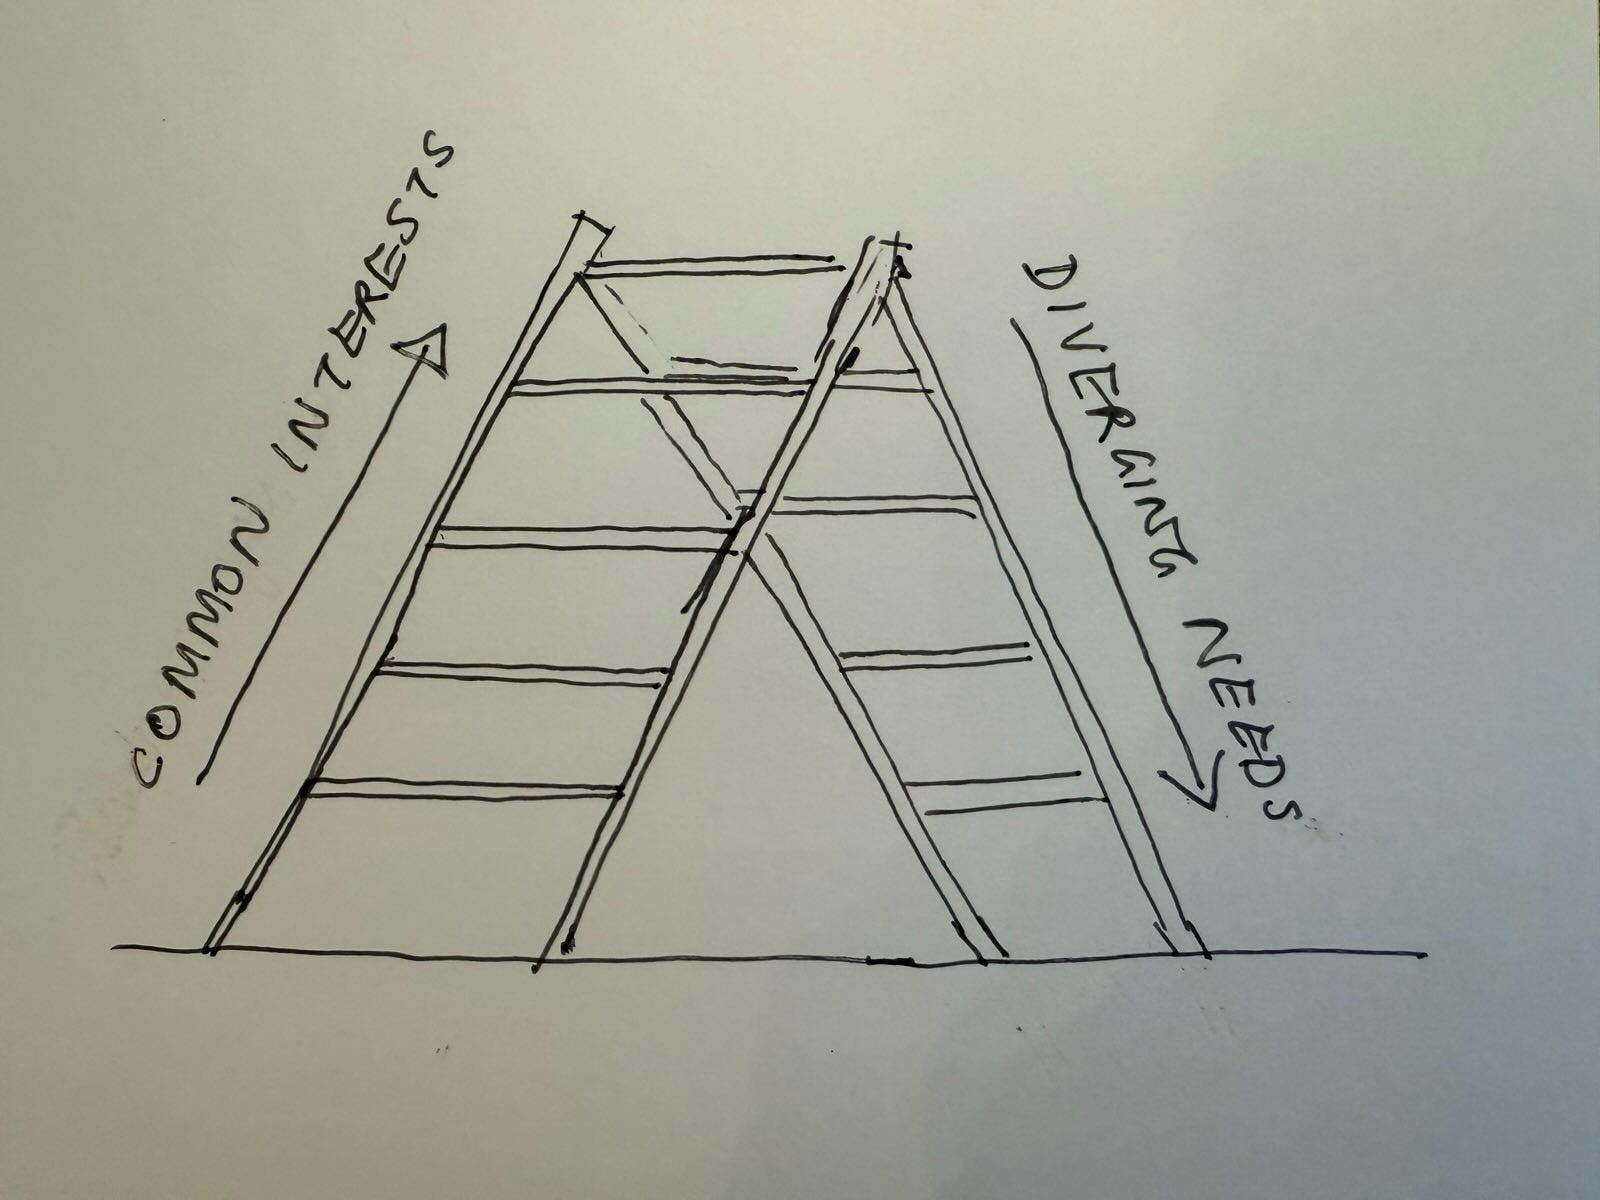 COMMON INTERESTS
DIVERGING NEEDS